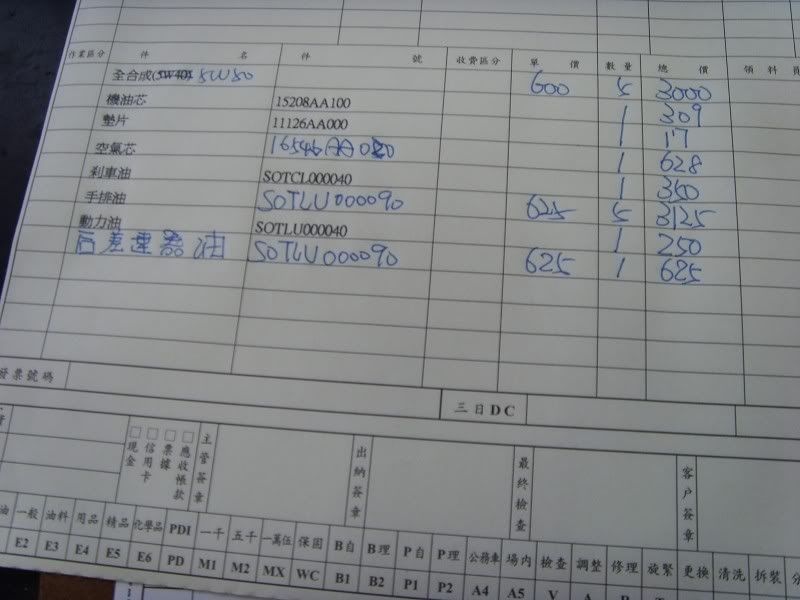 作業區分 件 名 件 號 收費區分 單 價 數 量 總 價 領 料 員
全合成(5W40) 5W50 600 5 3000
機油芯 15208AA100 1 309
墊片 11126AA000 1 17
空氣芯 1 628
剎車油 SOTCL000040 1 350
手排油 SOTLU000090 625 5 3125
動力油 SOTLU000040 1 250
后差速器油 SOTLU000090 625 1 625
發票號碼
三日DC
□現金 □信用卡 □票據 □應收帳款 主管簽章 出納簽章 最終檢查 客户簽章
油 一般 油料 用品 精品 化學品 PDI 一千 五千 一萬伍 保固 B自 B理 P自 P理 公務車 場内 檢查 調整 修理 旋緊 更換 清洗 拆裝
E2 E3 E4 E5 E6 PD M1 M2 MX WC B1 B2 P1 P2 A4 A5 V A R